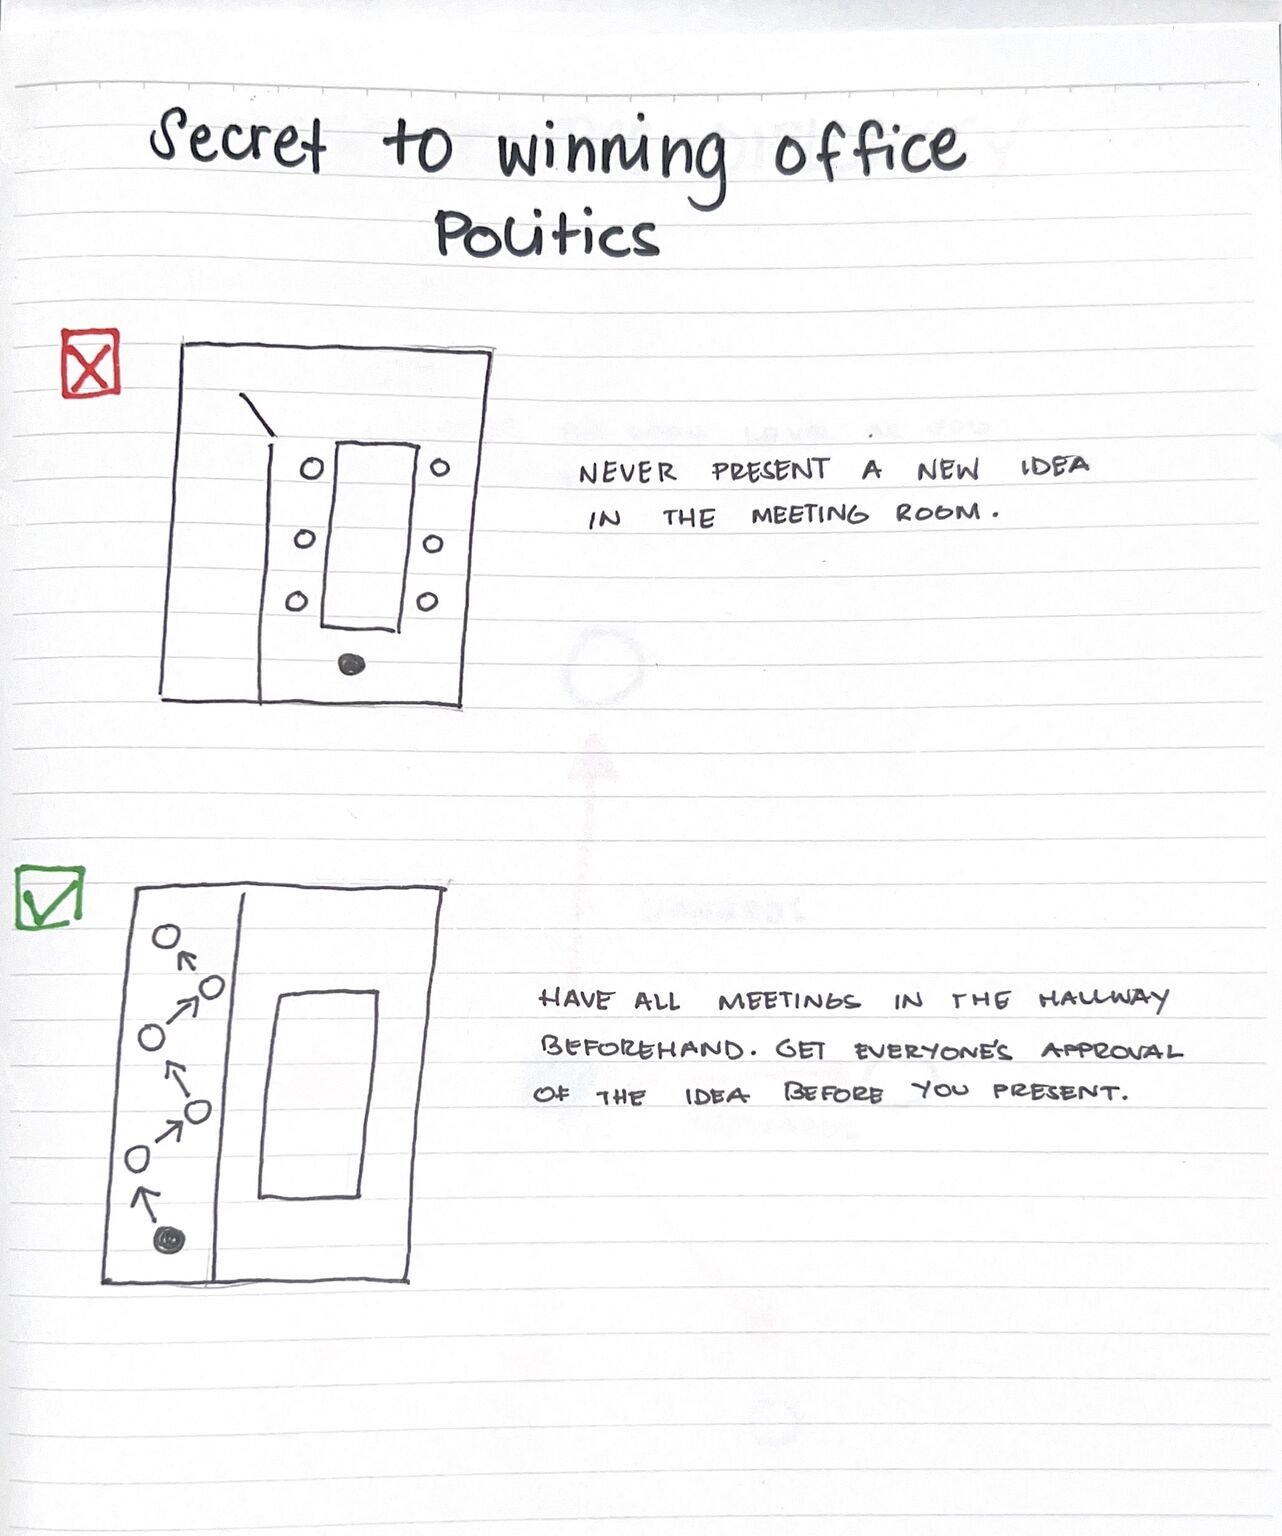 Secret to winning office
Politics
NEVER PRESENT A NEW IDEA
IN THE MEETING ROOM.
HAVE ALL MEETINGS IN THE HALLWAY
BEFOREHAND. GET EVERYONE'S APPROVAL
OF THE IDEA BEFORE YOU PRESENT.